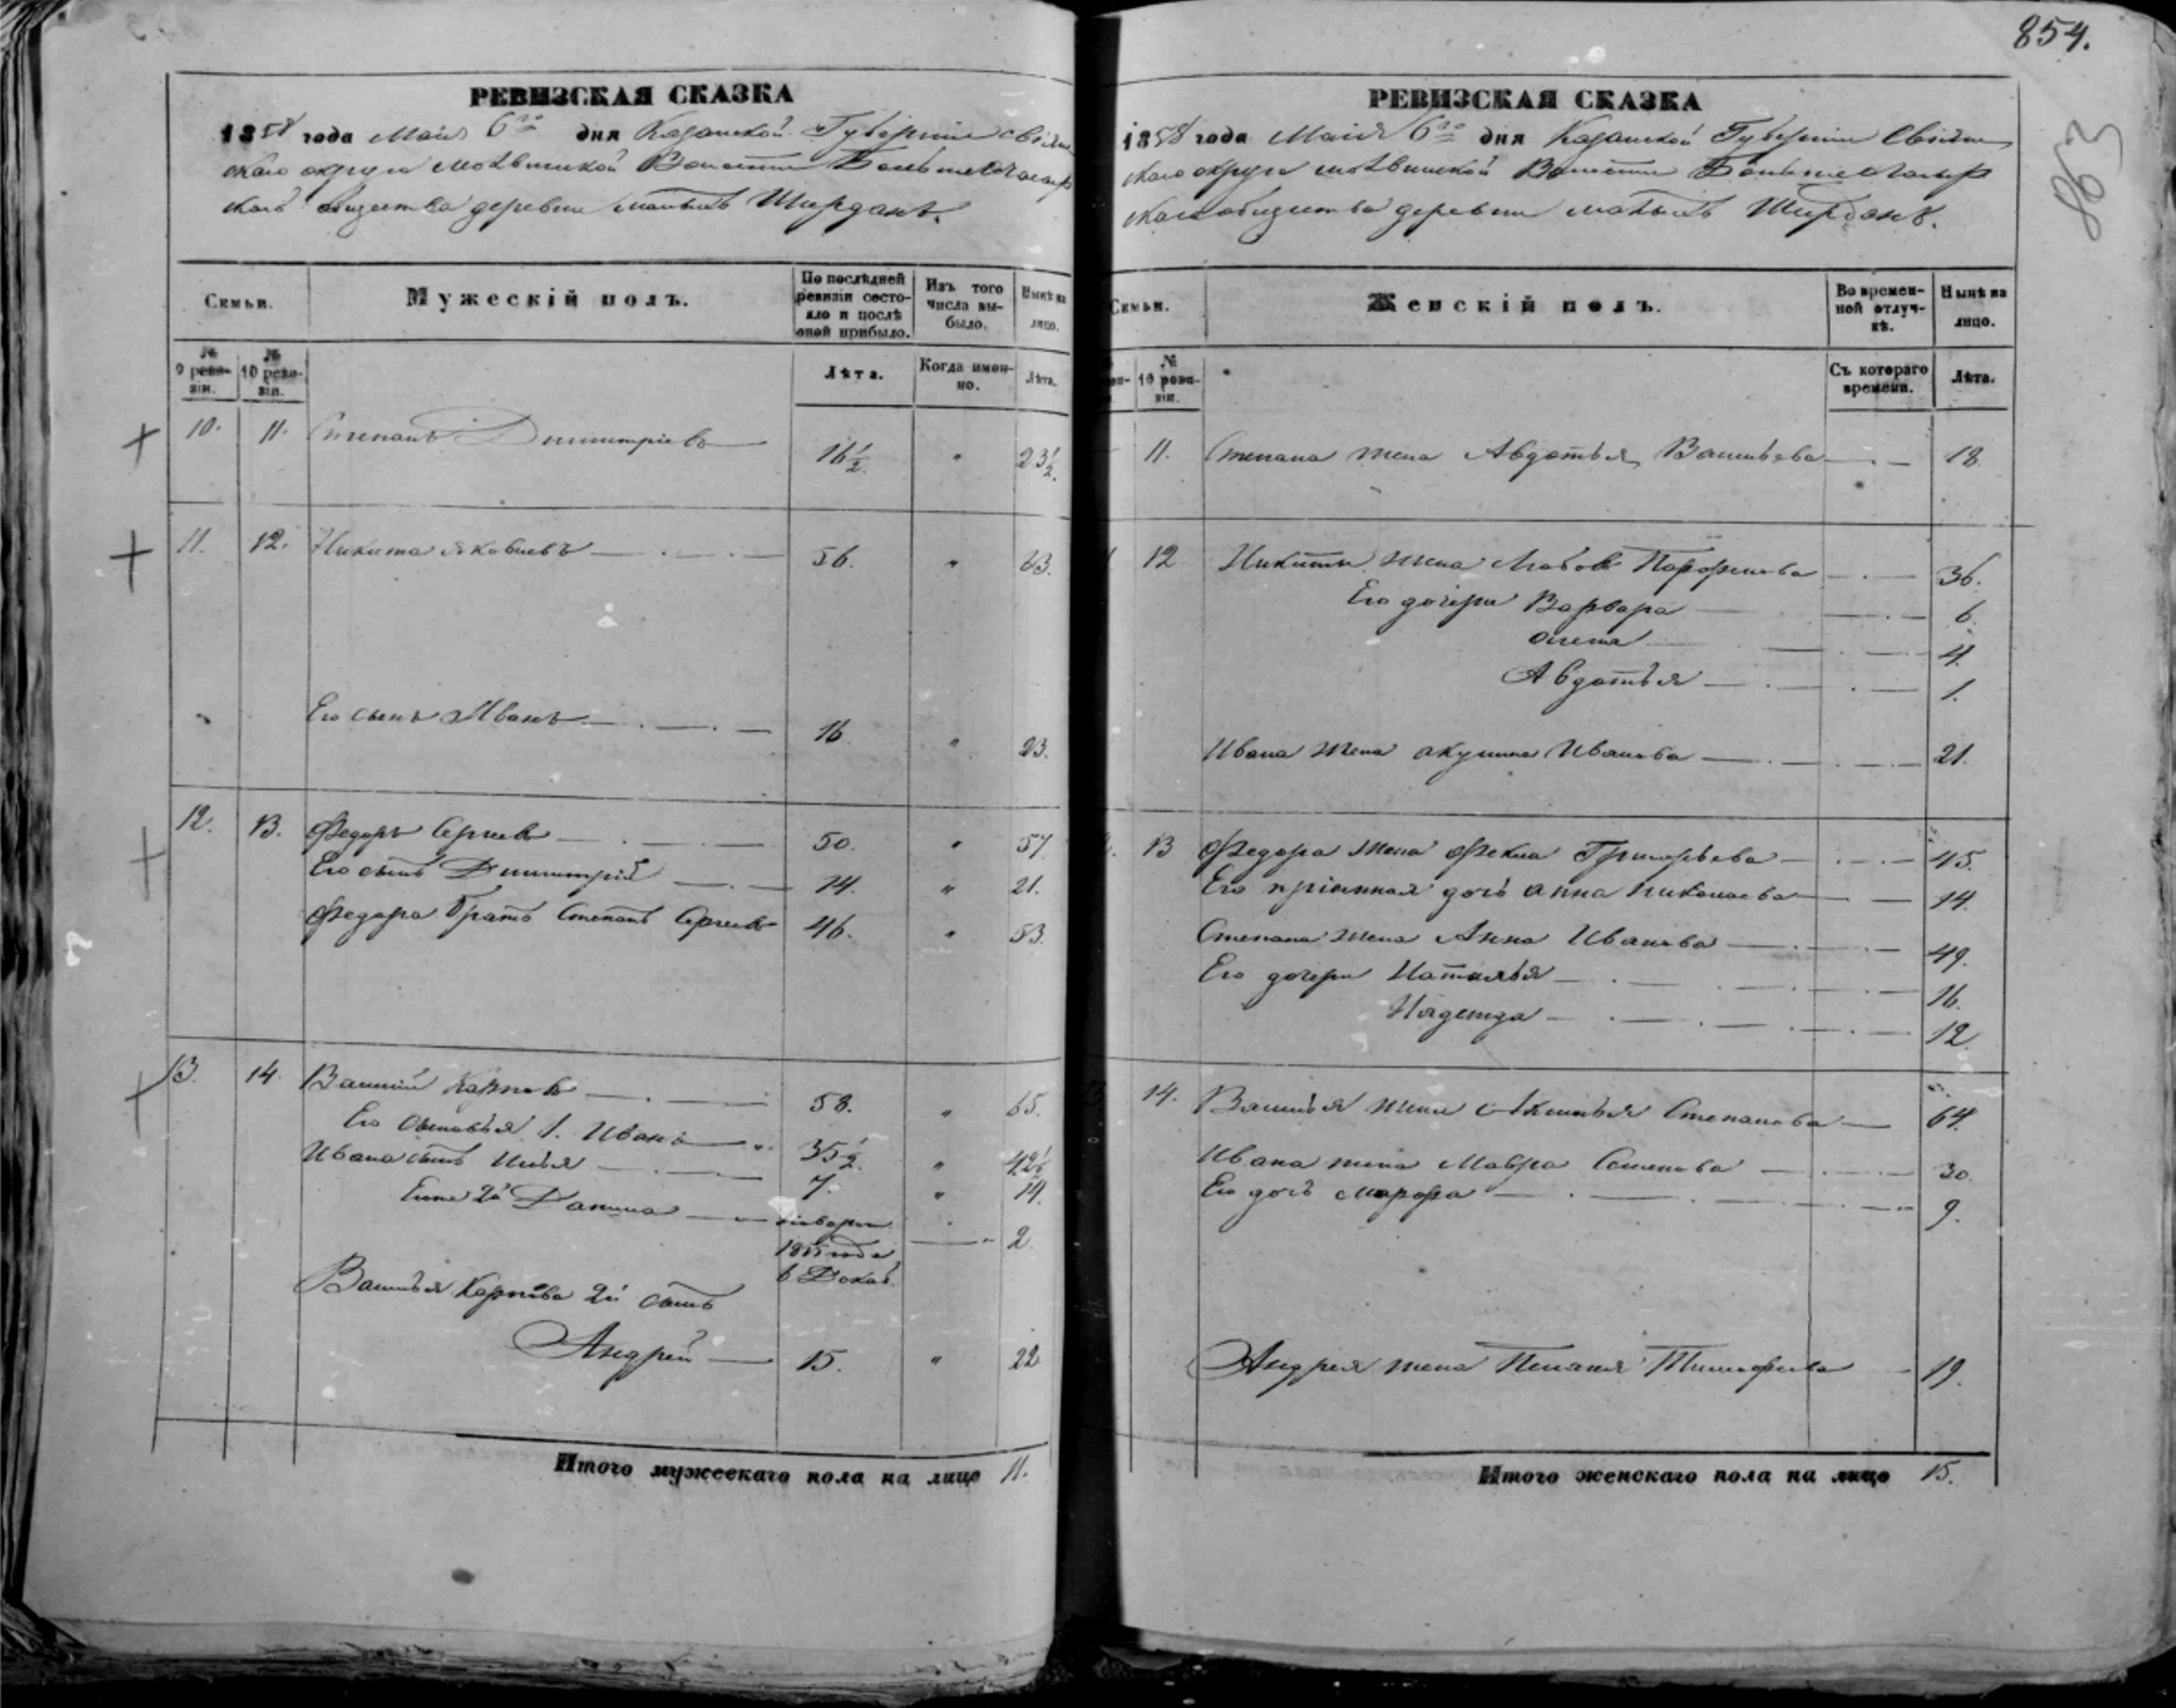 854.
863
РЕВИЗСКАЯ СКАЗКА
1858 года Маія 6го дня Казанской Губерніи Свіяж
скаго округа Волости
скаго общества деревни малыхъ Ширданъ.
Семьи.
Мужескій полъ.
По послѣдней ревизіи состояло и послѣ оной прибыло.
Изъ того числа выбыло.
Нынѣ на лицо.
№ 9 ревизіи.
№ 10 ревизіи.
Лѣта.
Когда именно.
Лѣта.
10. 11. Степанъ Димитріевъ 16½. " 23½.
11. 12. Никита Яковлевъ 56. " 63.
Его сынъ Иванъ 16. " 23.
12. 13. Федоръ Сергеевъ 50. " 57.
Его сынъ Димитрій 14. " 21.
Федора братъ Степанъ Сергеевъ 46. " 53.
13. 14. Василій Карповъ 58. " 65.
Его сыновья 1. Иванъ 35½. " 42½
Ивана сынъ Илья 7. " 14.
Ему 2й Данила 2.
1855 года
Василья Карпова 2й сынъ
Андрей 15. " 22.
Итого мужескаго пола на лицо 11.
РЕВИЗСКАЯ СКАЗКА
1858 года Маія 6го дня Казанской Губерніи Свіяж
скаго округа Волости
скаго общества деревни малыхъ Ширданъ.
Семьи.
Женскій полъ.
Во временной отлучкѣ.
Нынѣ на лицо.
№ 10 ревизіи.
Съ котораго времени.
Лѣта.
11. Степана жена Авдотья Васильева 18.
12 Никиты жена Парфенова 36.
Его дочери Варвара 6.
4.
Авдотья 1.
Ивана жена акулина Иванова 21.
13 Федора жена Фекла Григорьева 45.
Его пріемная дочь анна николаева 14.
Степана жена Анна Иванова 49.
Его дочери Наталья 16.
Надежда 12.
14. Василья жена Степанова 64.
Ивана жена Мавра Семенова 30.
Его дочь Марфа 9.
Андрея жена Пелагея Тимофеева 19.
Итого женскаго пола на лицо 15.